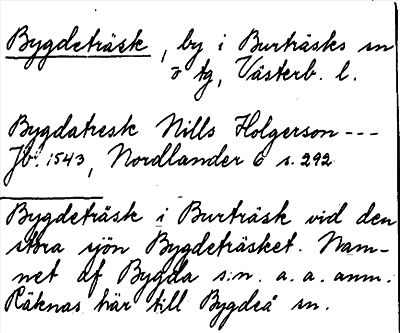 Bygdeträsk, by i Burträsks sn
o tg, Västerb. l.
Bygdatresk Nills Holgerson ---
Jb. 1543, Nordlander 6 s. 292
Bygdeträsk i Burträsk vid den
stora sjön Bygdeträsket. Nam-
net af Bygda s:n. a. a. anm.
Räknas här till Bygdeå sn.